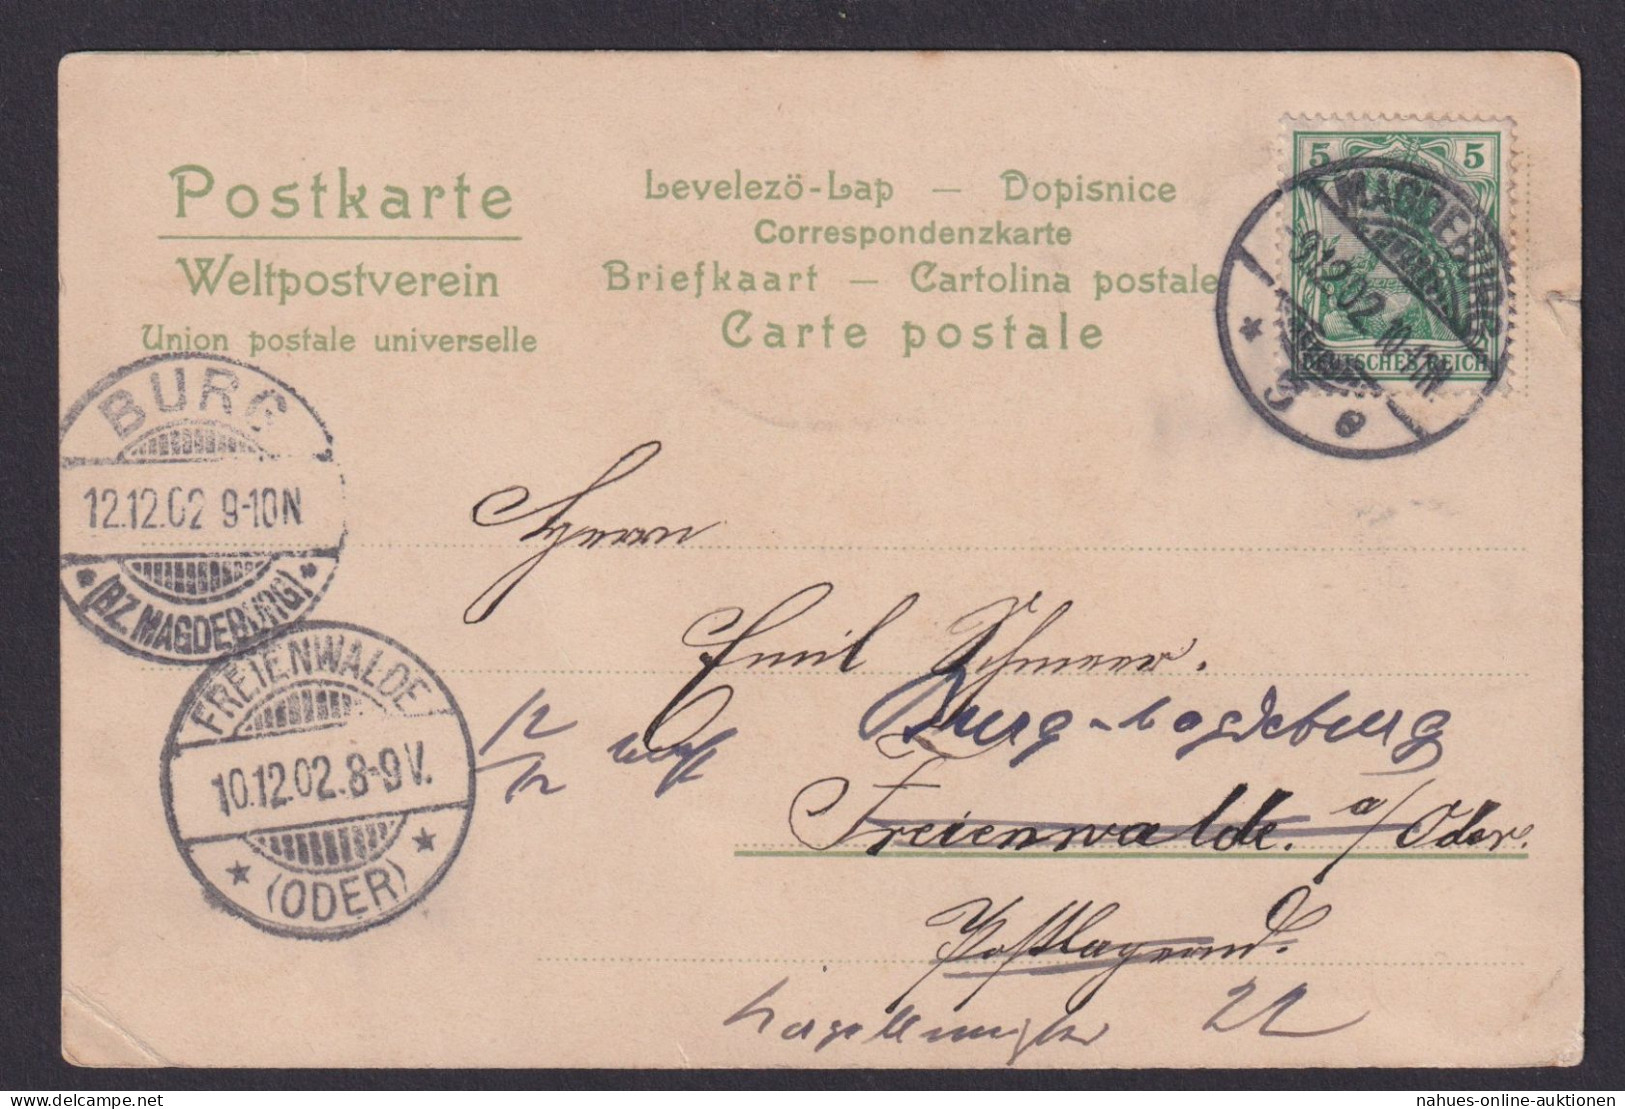 Postkarte
Weltpostverein
Union postale universelle
Levelezö-Lap — Dopisnice
Correspondenzkarte
Briefkaart — Cartolina postale
Carte postale
5 5
DEUTSCHES REICH
MAGDEBURG
9.12.02 10-11N.
* 5 e
BURG
12.12.02 9-10N
* (BZ. MAGDEBURG) *
FREIENWALDE
10.12.02.8-9V.
* (ODER) *
Herrn
Emil Schmeer.
Burg-Magdeburg
12
12
Freienwalde. a/Oder.
Postlagernd.
22
nahues-online-auktionen